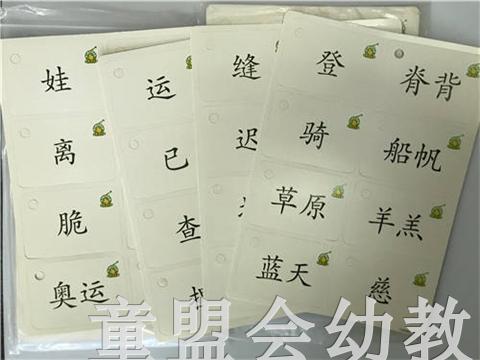 娃
离
脆
奥运
运
已
查
缝
迟
登
脊背
骑
船帆
草原
羊羔
蓝天
慈
童盟会幼教